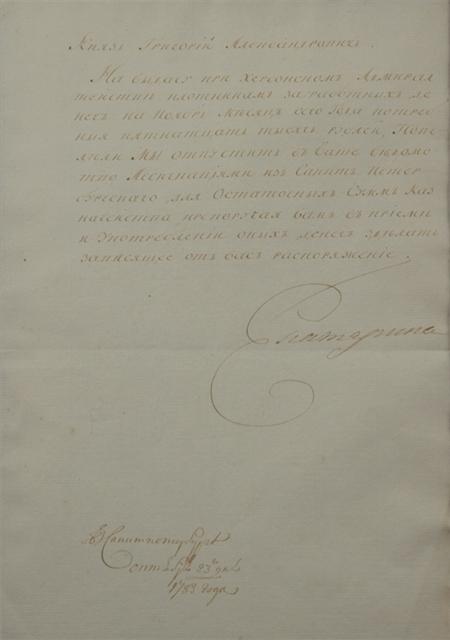 Князь Григорій Александровичь.
На выдачу при Херсонскомъ Адмирал
тействѣ плотникамъ заработныхъ де
негъ на Ноябрь Мѣсяцъ сего Года потреб
ныя пятнатцать тысячь рублей, Пове
лѣли Мы отпустить въ
Ассигнаціями изъ Санктъ Петер
бургскаго для Остаточныхъ Суммъ Каз
начейства препоручая вамъ въ пріемѣ
и Употребленіи оныхъ денегъ здѣлать
зависящее отъ васъ распоряженіе.
Екатерина
В Санктпетербургѣ
Сентября 23го дня
1783 года